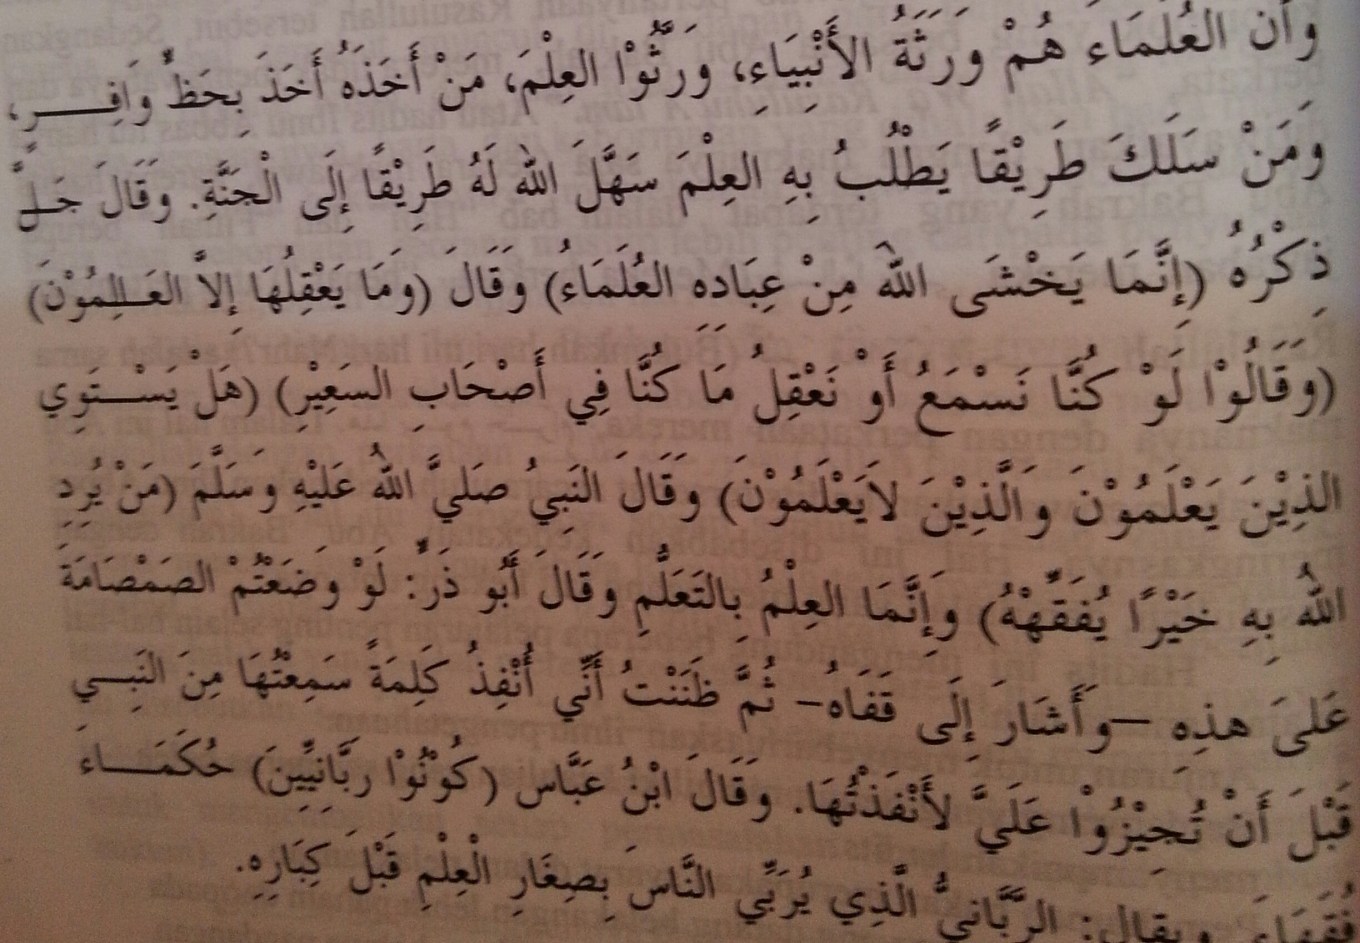 وَأَنَّ العُلَمَاءَ هُمْ وَرَثَةُ الأَنْبِيَاءِ، وَرَّثُوْا العِلْمَ، مَنْ أَخَذَهُ أَخَذَ بِحَظٍّ وَافِرٍ،
وَمَنْ سَلَكَ طَرِيْقًا يَطْلُبُ بِهِ العِلْمَ سَهَّلَ اللهُ لَهُ طَرِيْقًا إِلَى الْجَنَّةِ. وَقَالَ جَلَّ
ذِكْرُهُ (إِنَّمَا يَخْشَى اللهَ مِنْ عِبَادِه العُلَمَاءُ) وَقَالَ (وَمَا يَعْقِلُهَا إِلاَّ العَالِمُوْنَ)
(وَقَالُوْا لَوْ كُنَّا نَسْمَعُ أَوْ نَعْقِلُ مَا كُنَّا فِي أَصْحَابِ السَعِيْرِ) (هَلْ يَسْتَوِي
الذِيْنَ يَعْلَمُوْنَ وَالَّذِيْنَ لاَيَعْلَمُوْنَ) وَقَالَ النَبِيُ صَلىَّ اللهُ عَلَيْهِ وَسَلَّمَ (مَنْ يُرِدِ
اللهُ بِهِ خَيْرًا يُفَقِّهْهُ) وَإِنَّمَا العِلْمُ بِالتَعَلُّمِ وَقَالَ أَبُو ذَرٍّ: لَوْ وَضَعْتُمْ الصَمْصَامَةَ
عَلىَ هذِهِ –وَأَشَارَ إِلَى قَفَاهُ– ثُمَّ ظَنَنْتُ أَنِّي أُنْفِذُ كَلِمَةً سَمِعْتُهَا مِنَ النَبِيِ
قَبْلَ أَنْ تُجِيْزُوْا عَلَيَّ لأَنْفَذْتُهَا. وَقَالَ ابْنُ عَبَّاس (كُوْنُوْا رَبَّانِيِّينَ) حُكَمَاءَ
فُقَهَاءَ. ويقال: الرَّبَّانِيُّ الَّذِي يُرَبِّي النَّاسَ بِصِغَارِ الْعِلْمِ قَبْلَ كِبَارِهِ.